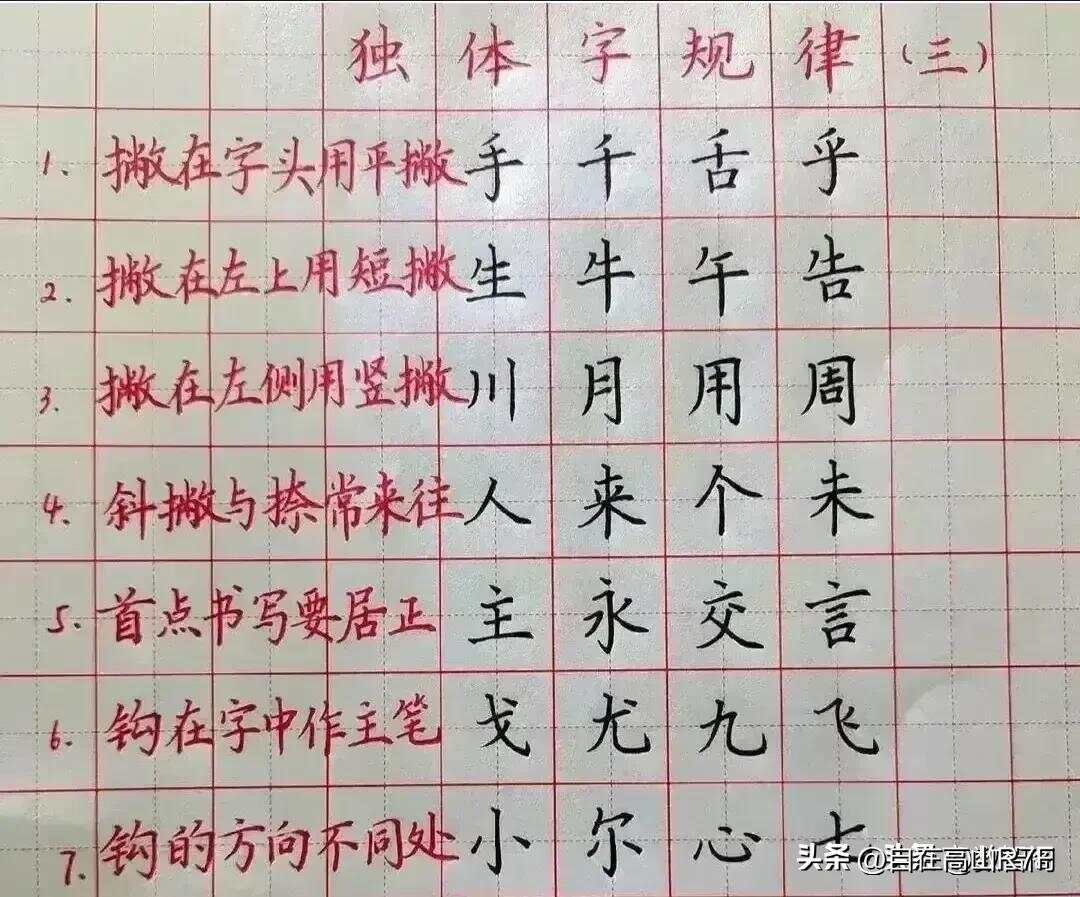 独体字规律(三)
1. 撇在字头用平撇 手 千 舌 乎
2. 撇在左上用短撇 生 牛 午 告
3. 撇在左侧用竖撇 川 月 用 周
4. 斜撇与捺常来往 人 来 个 未
5. 首点书写要居正 主 永 交 言
6. 钩在字中作主笔 戈 尤 九 飞
7. 钩的方向不同处 小 尔 心
头条 @